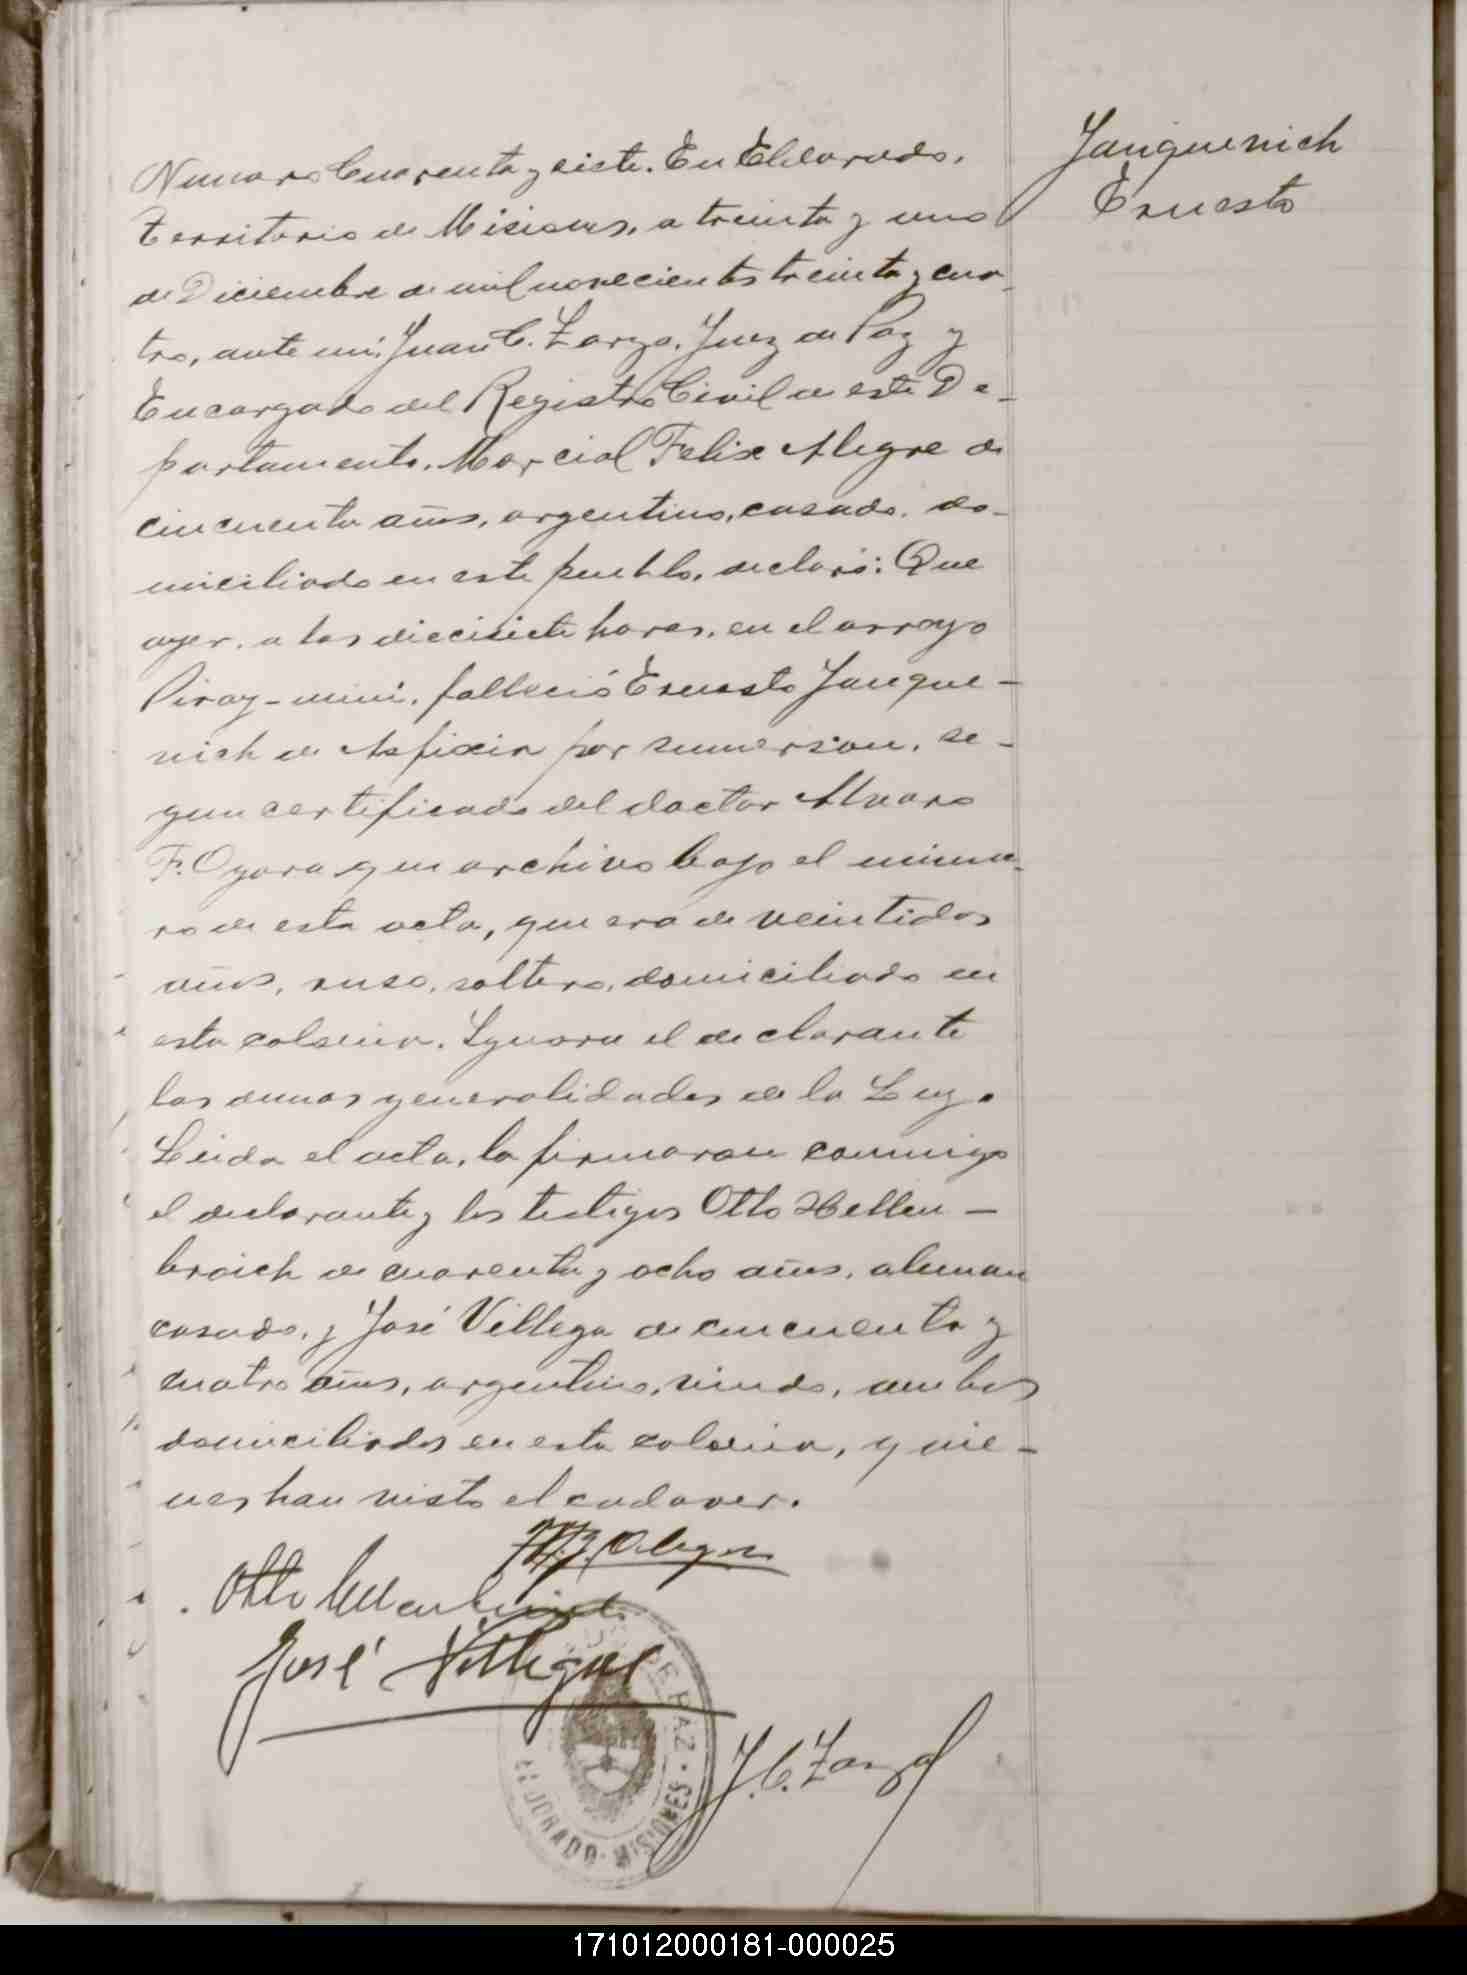 Janquenich
Ernesto
Numero Cuarenta y siete. En Eldorado,
Territorio de Misiones, a treinta y uno
de Diciembre de mil novecientos treinta y cua-
tro, ante mi, Juan C. Zarza, Juez de Paz y
Encargado del Registro Civil de este De-
partamento, Marcial Felix Alegre de
cincuenta años, argentino, casado, do-
miciliado en este pueblo, declaró: Que
ayer, a las diecisiete horas, en el arroyo
Piray-mini, falleció Ernesto Janque-
nich de Asfixia por sumersion, se-
gun certificado del doctor Alvaro
F. Ogara que archivo bajo el nume-
ro de esta acta, que era de veintidos
años, ruso, soltero, domiciliado en
esta colonia. Ignora el declarante
las demas generalidades de la Ley.
Leida el acta, la firmaron conmigo
el declarante y los testigos Otto Hellen-
broich de cuarenta y ocho años, aleman
casado, y José Villega de cincuenta y
cuatro años, argentino, viudo, ambos
domiciliados en esta colonia, quie-
nes han visto el cadaver.
M. F. Alegre
Otto Hellenbroich
José Villegas
DE PAZ · ELDORADO · MISIONES
J. C. Zarza
171012000181-000025